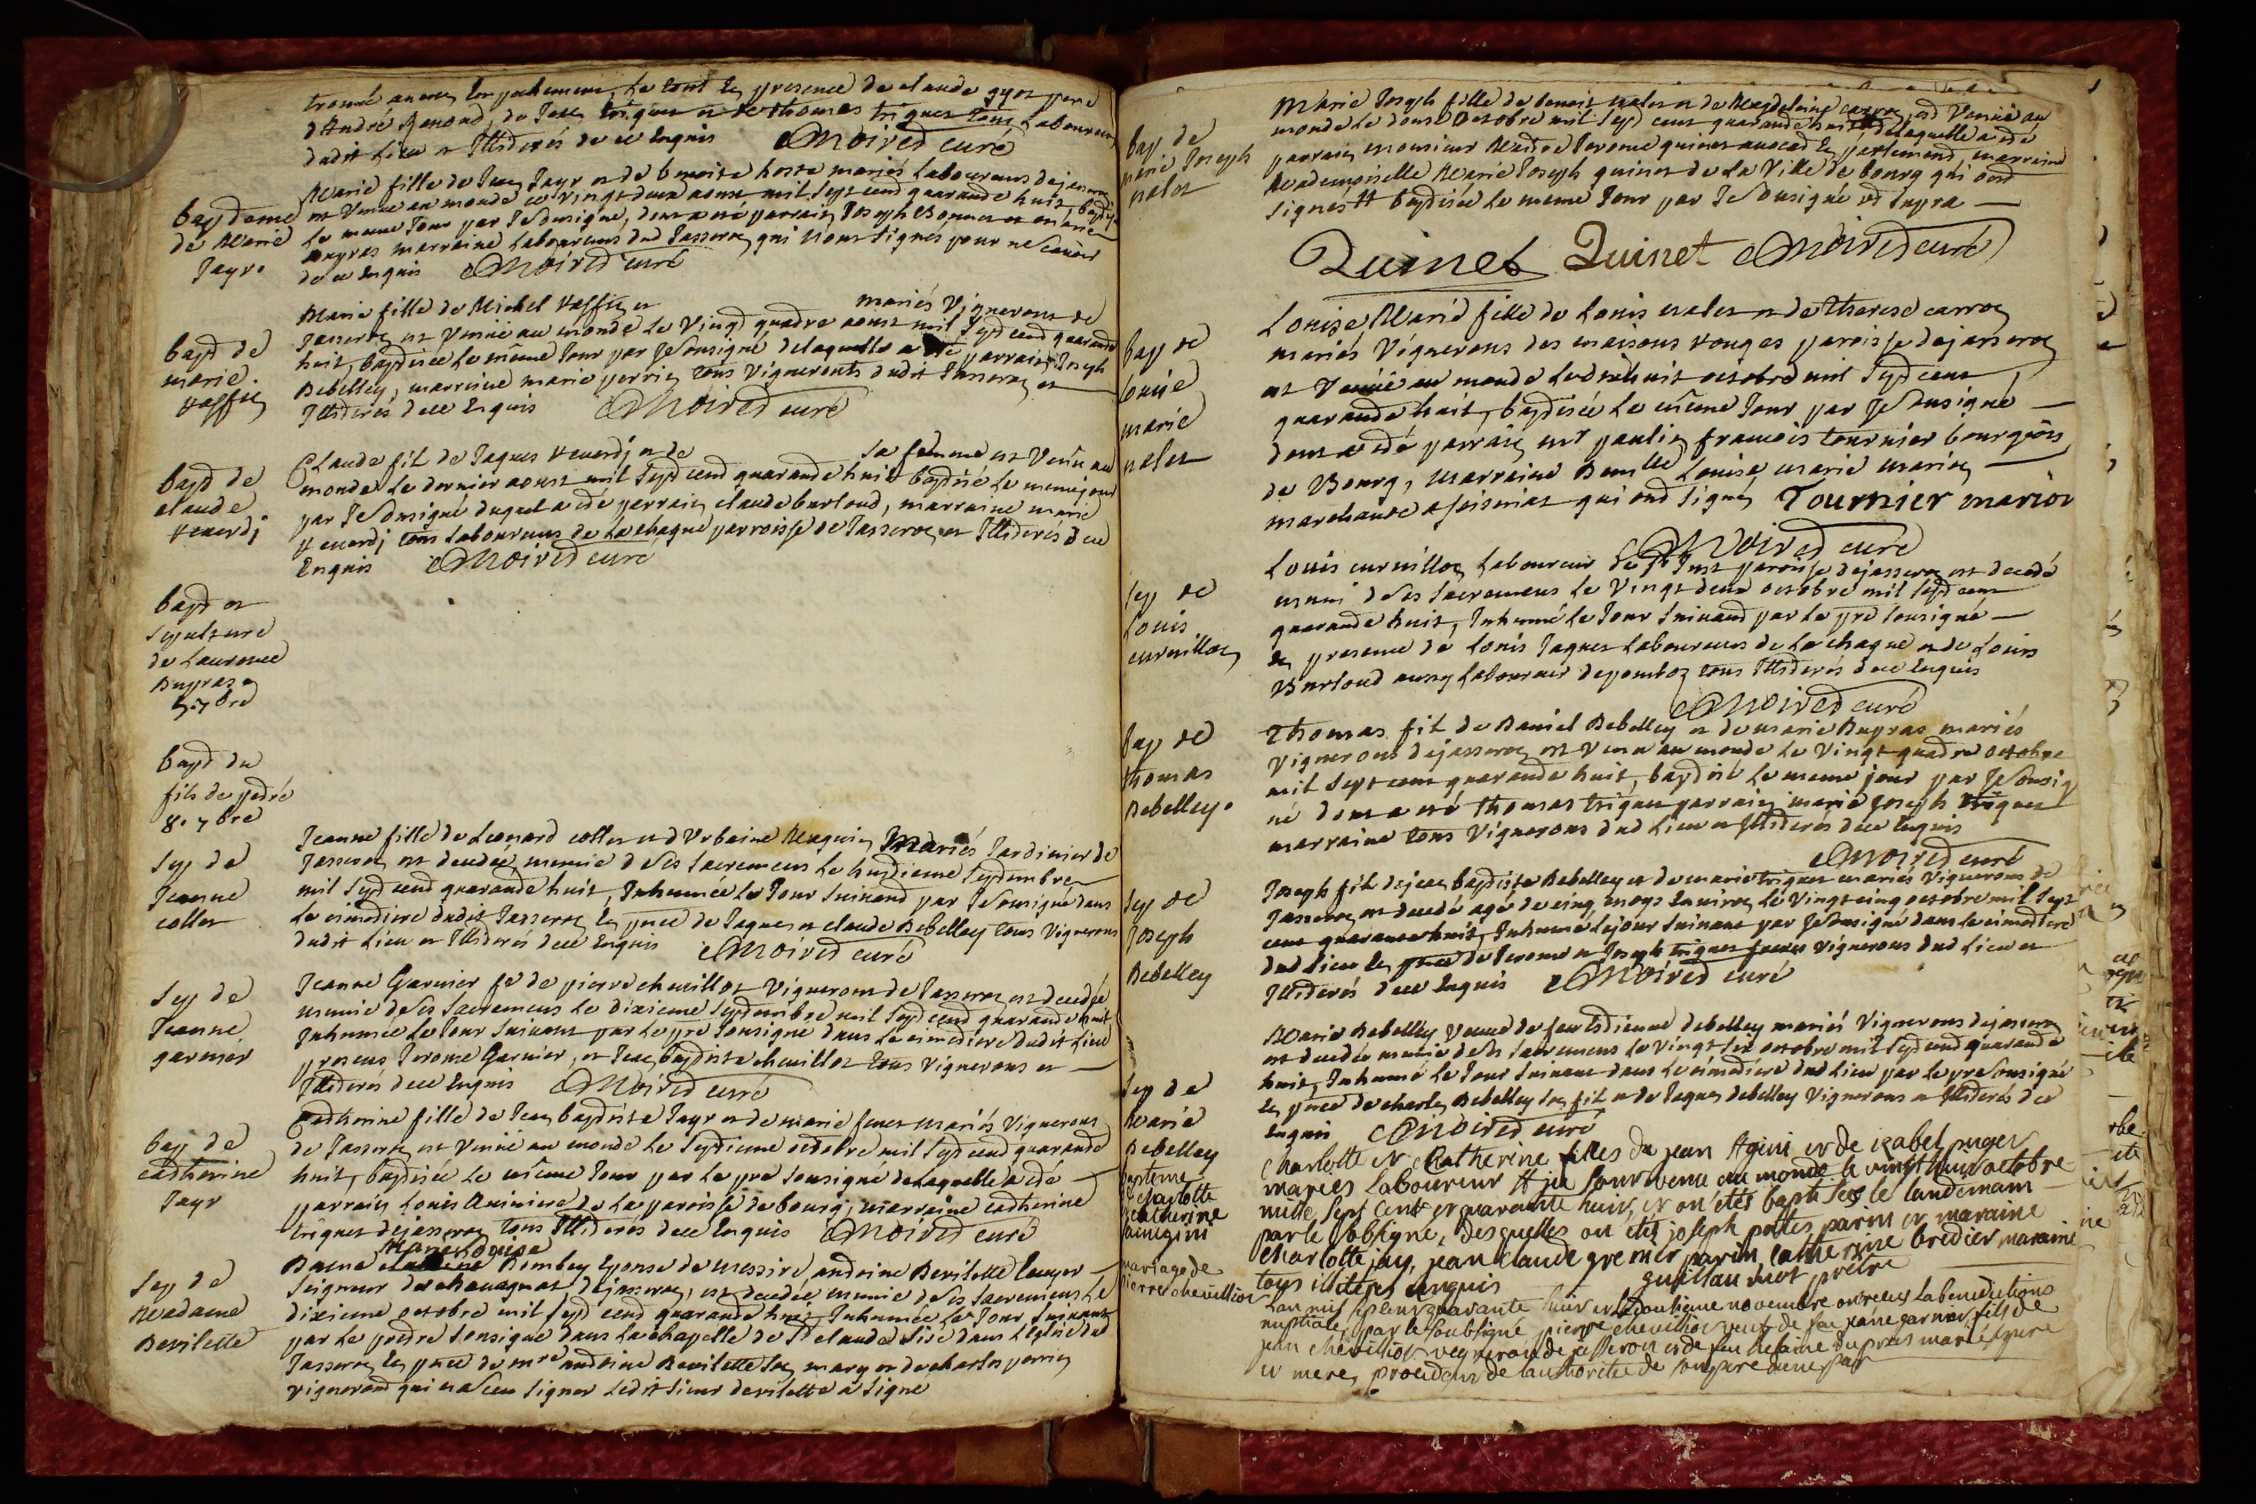 trouvé Le tout En presence de claude gyot pere
d'André Renoud, de Jean triquet et de thomas triquet tous Laboureurs
dudit Lieu et Illiterés de ce Enquis Moired curé
bapteme
de Marie
Jayr.
Marie fille de Jean Jayr et de benoite hoste mariés Laboureurs dejasseron
est venue au monde ce vingt deux aoust mil sept cend quarande huit, baptisée
Le meme Jour par Je Sousigné, dont a été parrain Joseph Bonnet et marie
Dupras marraine Laboureurs dud Jasseron, qui n'ont signés pour ne scavoir
de ce Enquis Moired curé
bapt de
marie
Marie fille de Michel et mariés Vignerons de
Jasseron est Venüe au monde Le Vingt quadre aoust mil Sept cend quarande
huit, baptisée Le même Jour par Je Sousigné delaquelle a été parrain Joseph
Debelley, marraine marie perrin tous Vignerons dudit Jasseron et
Illiterés dece Enquis Moired curé
bapt de
claude
Claude fil de Jaques et de sa femme est Venu au
monde Le dernier aoust mil Sept cend quarande huit baptisé Le meme jour
par Je Sousigné duquel a eté parrain claude burloud, marraine marie
tous Laboureurs de Lachaque parroisse de Jasseron et Illiterés de ce
Enquis Moired curé
bapt et
Sepulture
de Laurence
Dupras
5. 7bre
bapt du
fils de
8. 7bre
Sep de
Jeanne
collet
Jeanne fille de Leonard collet et d'Urbaine Maguin Mariés Jardinier de
Jasseron est decedée, munie de Ses Sacremens Le huitieme Septembre
mil Sept cend quarande huit, Inhumée Le Jour Suivand par Je Sousigné dans
Le cimediere dudit Jasseron En pnce de Jaques et claude Debelley tous Vignerons
dudit Lieu et Illiterés dece Enquis Moired curé
Sep de
Jeanne
garnier
Jeanne Garnier fe de pierre chevillot Vigneron de Jasseron est decedée
munie de Ses Sacremens Le dixieme Septembre mil Sept cend quarande huit
Inhumée Le Jour Suivant par Le pre Sousigné dans Le cimediere dudit Lieu
presens Jerome Garnier, et Jean baptiste chevillot tous Vignerons et
Illiterés dece Enquis Moired curé
bap de
Catherine
Jayr
Catherine fille de Jean baptiste Jayr et de marie mariés Vignerons
de Jasseron est Venüe au monde Le Septieme octobre mil Sept cend quarande
huit, baptisée Le même Jour par Le pre Sousigné delaquelle a été
parrain Louis de La paroisse de bourg, marraine catherine
triquet dejasseron tous Illiterés dece Enquis Moired curé
Sep de
Madame
Devilette
Marie Louise
Dame Dombey Eponse de messire andoine Devilette Ecuyer
Seigneur de dejasseron, est decedée munie de Ses Sacremens Le
dixieme octobre mil Sept cend quarande huit Inhumée Le Jour Suivant
par Le predre Sousigné dans Lachapelle de St claude Sise dans L'Eglise dud
Jasseron En pnce de mre andoine Devilette Son mary et de charles perrin
vigneron qui na Sceu Signer Ledit Sieur devilette a Signé
bap de
marie Joseph
nalet
Marie Joseph fille de benoit nalet et de Magdeleine carron est Venüe au
monde Le douse Octobre mil Sept cens quarande huit delaquelle a été
parrain monsieur Maitre Jerome quinet avocad En parlemend, marraine
Mademoiselle Marie Joseph quinet de La Ville de bourg qui ond
signés baptisée Le meme Jour par Je Sousigné ut Supra
Quinet Quinet Moired curé
bap de
Louise
marie
nalet
Louise Marie fille de Louis nalet et de Therese carron
mariés Vignerons des maisons rouges paroisse dejasseron
est Venüe au monde Ledixhuit octobre mil Sept cens
quarande huit, baptisée Le même Jour par Je Sousigné
dont a eté parrain mr paulin francois tournier bourgeois
de Bourg, marraine Demlle Louise marie marion
marchande qui ond Signés Tournier marion
Moired curé
Sep de
Louis
curvillon
Louis curvillon Laboureur de paroisse dejasseron est decedé
muni de Ses Sacremens Le Vingt deux octobre mil Sept cens
quarande huit, Inhumé Le Jour Suivand par Le pre Sousigné
En presence de Louis Jaques Laboureurs de Lachaque et de Louis
Burloud aussy Laboureur tous Illiterés dece Enquis
Moired curé
bap de
thomas
Debelley.
Thomas fil de Daniel Debelley et de marie Dupras mariés
Vignerons dejasseron est Venu au monde Le Vingt quadre octobre
mil Sept cens quarande huit, baptisé Le meme jour par Je Sousig
né dont a eté thomas triquet parrain marie Joseph triquet
marraine tous Vignerons dud Lieu et Illiterés dece Enquis
Moired curé
Sep de
Joseph
Debelley
Joseph fil dejean baptiste Debelley et de marie triquet mariés Vignerons de
Jasseron est decedé agé de cinq moys Environ Le Vingt cinq octobre mil Sept
cens quarande huit, Inhumé Lejour Suivant par Je Sousigné dans Le cimediere
dud Lieu En pnce de Jerome et Joseph triquet Vignerons dud Lieu et
Illiterés dece Enquis Moired curé
Sep de
Marie
Debelley
Marie Debelley Veuve de feu Etienne debelley mariés Vignerons dejasseron
est decedée munie de Ses Sacremens Le Vingt Six octobre mil Sept cend quarande
huit, Inhumé Le Jour Suivant dans Le cimediere dud Lieu par Le pre Sousigné
En pnce de charles Debelley Son fil et de Jaques debelley Vignerons et Illiterés de ce
Enquis Moired curé
baptème
de charlotte
et catherine
charlotte et Catherine filles de jean et de izabel puget
mariés Laboureur Sont venu au monde le vingt huit octobre
mille Sept Cent et quarante huit, et on étés baptisés le landemain
par le Sobsigné, desquelles on été joseph parin et maraine
Charlotte jay, jean claude grenier parin, catherine bredier maraine
tous illiteres enquis guillau prètre
mariage de
pierre chevillot
L'an mil Sept cent quarante huit et le doutieme novembre ont receus La benediction
nuptiale, par le Soubsigné pierre chevillot veuf de feu jeane garnier, fils de
jean chevillot vigneron de jasseron et de feu helaine dupras mariés pere
et mere, procedant de l'authorité de son pere d'une part